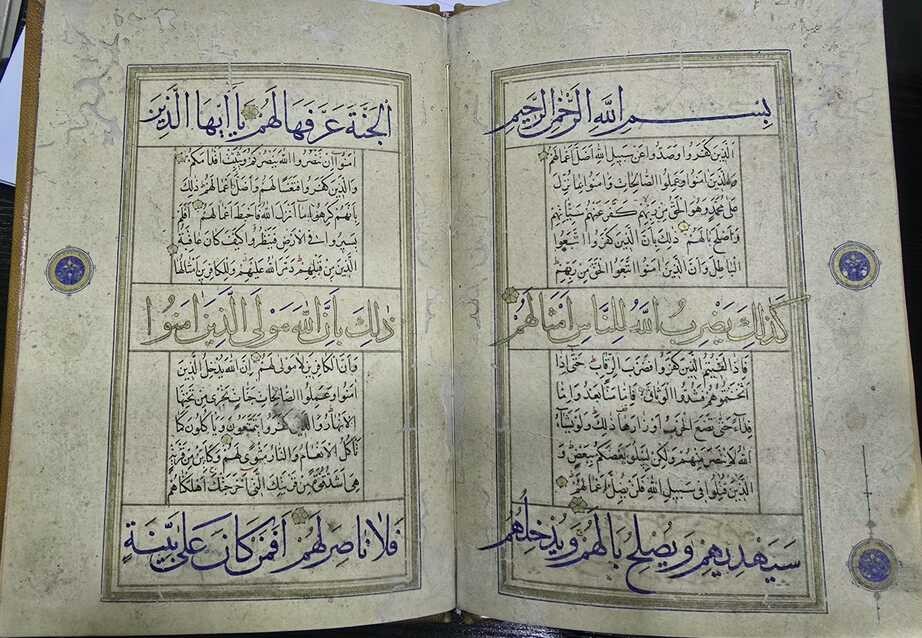 بسم الله الرحمن الرحيم
الذين كفروا وصدوا عن سبيل الله أضل أعمالهم
والذين امنوا وعملوا الصالحات وامنوا بما نزل
على محمد وهو الحق من ربهم كفر عنهم سيئاتهم
وأصلح بالهم ذلك بأن الذين كفروا اتبعوا
الباطل وأن الذين امنوا اتبعوا الحق من ربهم
كذلك يضرب الله للناس أمثالهم
فاذا لقيتم الذين كفروا فضرب الرقاب حتى إذا
أثخنتموهم فشدوا الوثاق فاما منا بعد واما
فداء حتى تضع الحرب أوزارها ذلك ولو يشاء
الله لانتصر منهم ولكن ليبلو بعضكم ببعض و
الذين قتلوا في سبيل الله فلن يضل أعمالهم
سيهديهم ويصلح بالهم ويدخلهم
الجنة عرفها لهم يا أيها الذين
امنوا ان تنصروا الله ينصركم ويثبت أقدامكم
والذين كفروا فتعسا لهم وأضل أعمالهم ذلك
بأنهم كرهوا ما أنزل الله فأحبط أعمالهم أفلم
يسيروا في الأرض فينظروا كيف كان عاقبة
الذين من قبلهم دمر الله عليهم وللكافرين أمثالها
ذلك بأن الله مولى الذين امنوا
وأن الكافرين لا مولى لهم إن الله يدخل الذين
امنوا وعملوا الصالحات جنات تجري من تحتها
الأنهار والذين كفروا يتمتعون ويأكلون كما
تأكل الأنعام والنار مثوى لهم وكأين من قرية
هي أشد قوة من قريتك التي أخرجتك أهلكناهم
فلا ناصر لهم أفمن كان على بينة